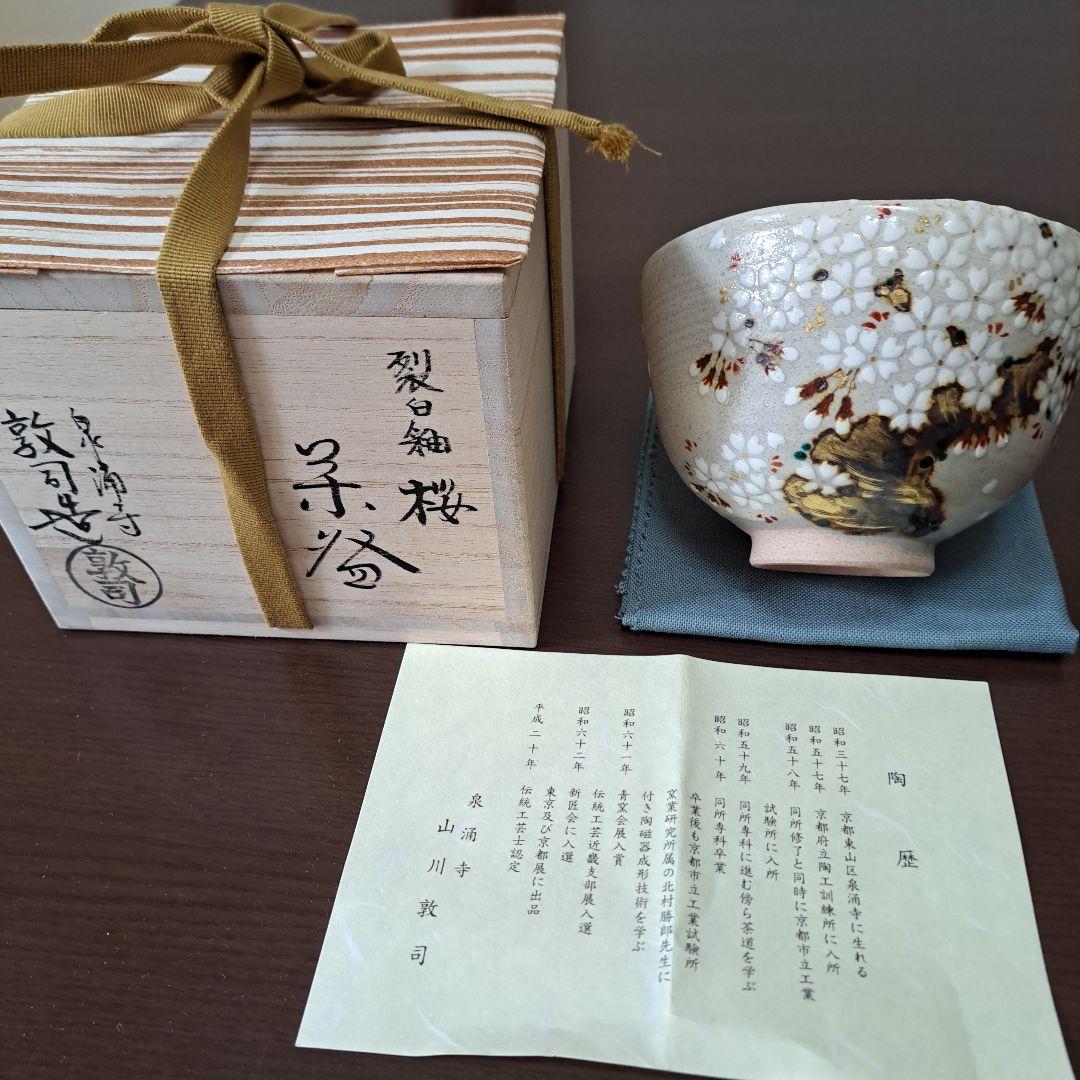 裂白釉
桜
茶盌
泉涌寺
敦司造
敦司
陶歴
昭和三十七年 京都東山区泉涌寺に生れる
昭和五十七年 京都府立陶工訓練所に入所
昭和五十八年 同所修了と同時に京都市立工業
試験所に入所
昭和五十九年 同所専科に進む傍ら茶道を学ぶ
昭和六十年 同所専科卒業
卒業後も京都市立工業試験所
窯業研究所属の北村勝郎先生に
付き陶磁器成形技術を学ぶ
昭和六十一年 青窯会展入賞
伝統工芸近畿支部展入選
昭和六十二年 新匠会に入選
東京及び京都展に出品
平成二十年 伝統工芸士認定
泉涌寺
山川敦司